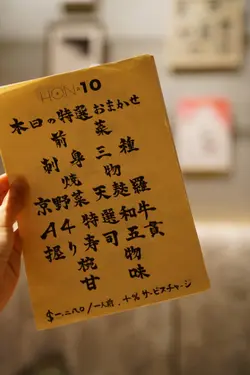 HON•10
本日の特選おまかせ
前菜
刺身三種
焼物
京野菜天麩羅
A4特選和牛
握り寿司五貫
椀物
甘味
$一、二八〇/一人前、十%サービスチャージ